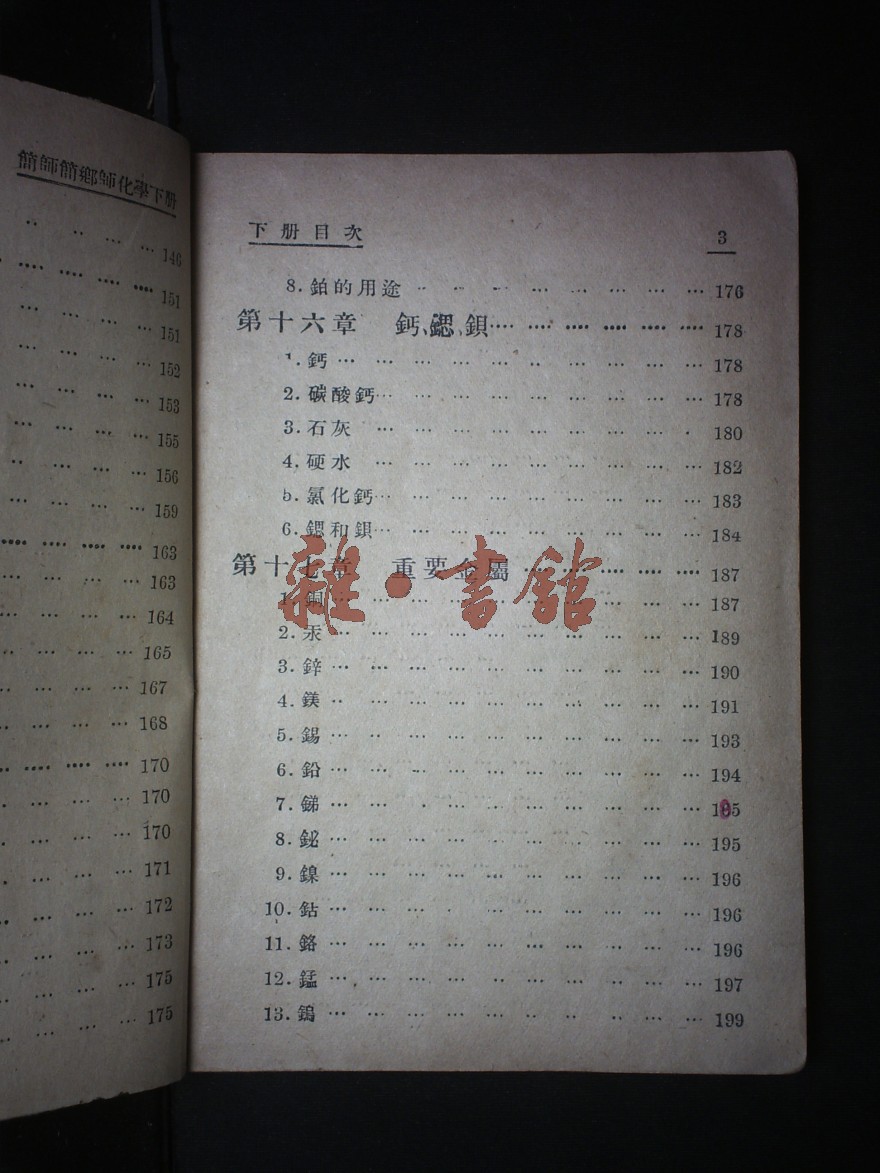 簡師簡鄉師化學下册
146
151
151
152
153
155
156
159
163
163
164
165
167
168
170
170
170
171
172
173
175
175
下册目次 3
8. 鉑的用途 176
第十六章 鈣、鍶、鋇 178
1. 鈣 178
2. 碳酸鈣 178
3. 石灰 180
4. 硬水 182
5. 氯化鈣 183
6. 鍶和鋇 184
第十七章 重要金屬 187
1. 銅 187
2. 汞 189
3. 鋅 190
4. 鎂 191
5. 錫 193
6. 鉛 194
7. 銻 195
8. 鉍 195
9. 鎳 196
10. 鈷 196
11. 鉻 196
12. 錳 197
13. 鎢 199
雜·書館